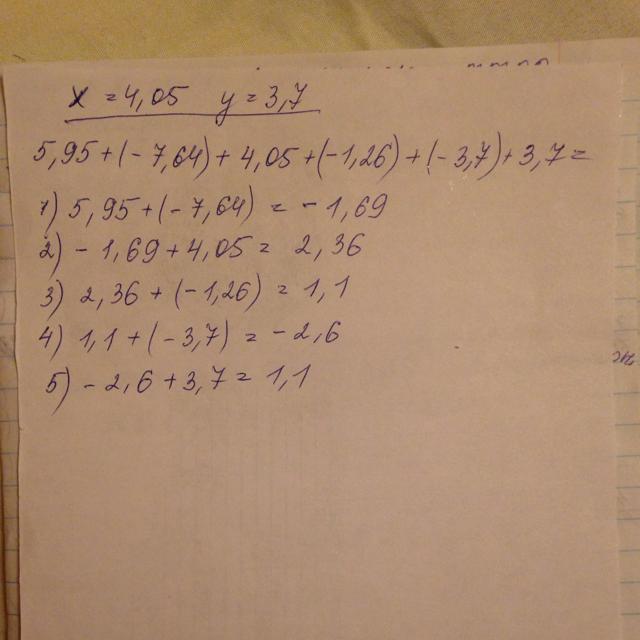 x = 4,05 y = 3,7
5,95 + (- 7,64) + 4,05 + (-1,26) + (- 3,7) + 3,7 =
1) 5,95 + (- 7,64) = - 1,69
2) - 1,69 + 4,05 = 2,36
3) 2,36 + (-1,26) = 1,1
4) 1,1 + (- 3,7) = - 2,6
5) - 2,6 + 3,7 = 1,1